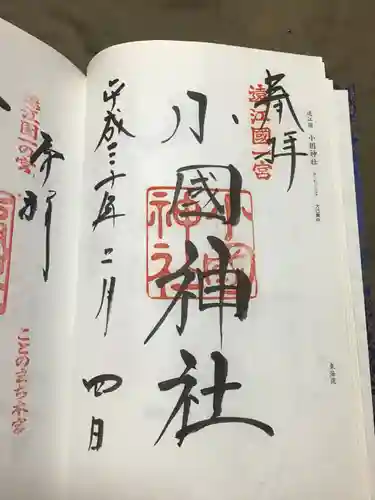 遠江國
小國神社
奉拝
遠江國一宮
小國神社
小國神社
平成三十年二月
四日
東海道
遠江国一の宮
奉拝
ことのまち本宮